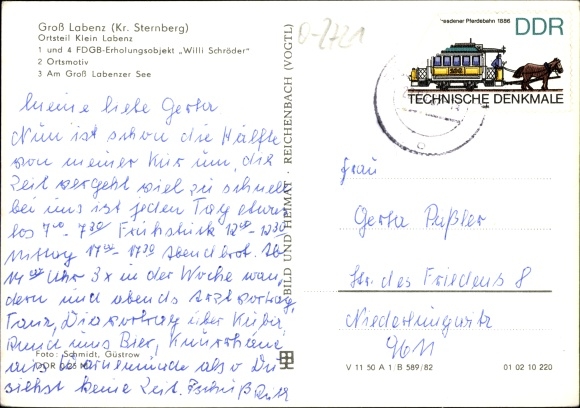 Groß Labenz (Kr. Sternberg)
Ortsteil Klein Labenz
1 und 4 FDGB-Erholungsobjekt „Willi Schröder"
2 Ortsmotiv
3 Am Groß Labenzer See
0-2721
Dresdener Pferdebahn 1886
DDR
TECHNISCHE DENKMALE
Meine liebe Gerta
Nun ist schon die Hälfte
von meiner Kur um, die
Zeit vergeht viel zu schnell
bei uns ist jeden Tag etwas
los 7⁰⁰-7³⁰ Frühstück 12⁰⁰-12³⁰
Mittag 17⁰⁰-17³⁰ Abendbrot. Ab
14⁰⁰ Uhr 3x in der Woche wan-
dern und abends Arztvortrag,
Tanz, Diavortrag über Kuba,
Rund ums Bier,
aus also Du
siehst keine Zeit. Tschüß Ruth
Foto: Schmidt, Güstrow
BILD UND HEIMAT · REICHENBACH (VOGTL)
Frau
Gerta Päßler
Str. des Friedens 8
Niederlungwitz
9611
V 11 50 A 1 B 589/82
01 02 10 220